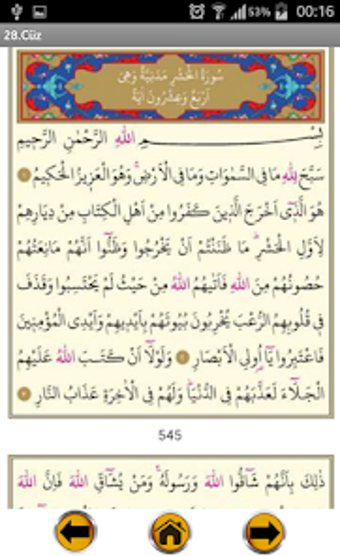 53% 00:16
28.Cüz
سُورَةُ الْحَشْرِ مَدَنِيَّةٌ وَهِيَ
اَرْبَعٌ وَعِشْرُونَ اٰيَةً
بِسْمِ اللهِ الرَّحْمٰنِ الرَّحِيمِ
سَبَّحَ لِلهِ مَا فِي السَّمٰوَاتِ وَمَا فِي الْاَرْضِۚ وَهُوَ الْعَزِيزُ الْحَكِيمُ ١
هُوَ الَّذ۪ٓي اَخْرَجَ الَّذِينَ كَفَرُوا مِنْ اَهْلِ الْكِتَابِ مِنْ دِيَارِهِمْ
لِاَوَّلِ الْحَشْرِۜ مَا ظَنَنْتُمْ اَنْ يَخْرُجُوا وَظَنُّٓوا اَنَّهُمْ مَانِعَتُهُمْ
حُصُونُهُمْ مِنَ اللهِ فَاَتٰيهُمُ اللهُ مِنْ حَيْثُ لَمْ يَحْتَسِبُوا وَقَذَفَ
فِي قُلُوبِهِمُ الرُّعْبَ يُخْرِبُونَ بُيُوتَهُمْ بِاَيْدِيهِمْ وَاَيْدِي الْمُؤْمِنِينَ
فَاعْتَبِرُوا يَٓا اُولِي الْاَبْصَارِ ٢ وَلَوْلَٓا اَنْ كَتَبَ اللهُ عَلَيْهِمُ
الْجَلَٓاءَ لَعَذَّبَهُمْ فِي الدُّنْيَاۜ وَلَهُمْ فِي الْاٰخِرَةِ عَذَابُ النَّارِ ٣
545
ذٰلِكَ بِاَنَّهُمْ شَٓاقُّوا اللهَ وَرَسُولَهُۚ وَمَنْ يُشَٓاقِّ اللهَ فَاِنَّ اللهَ